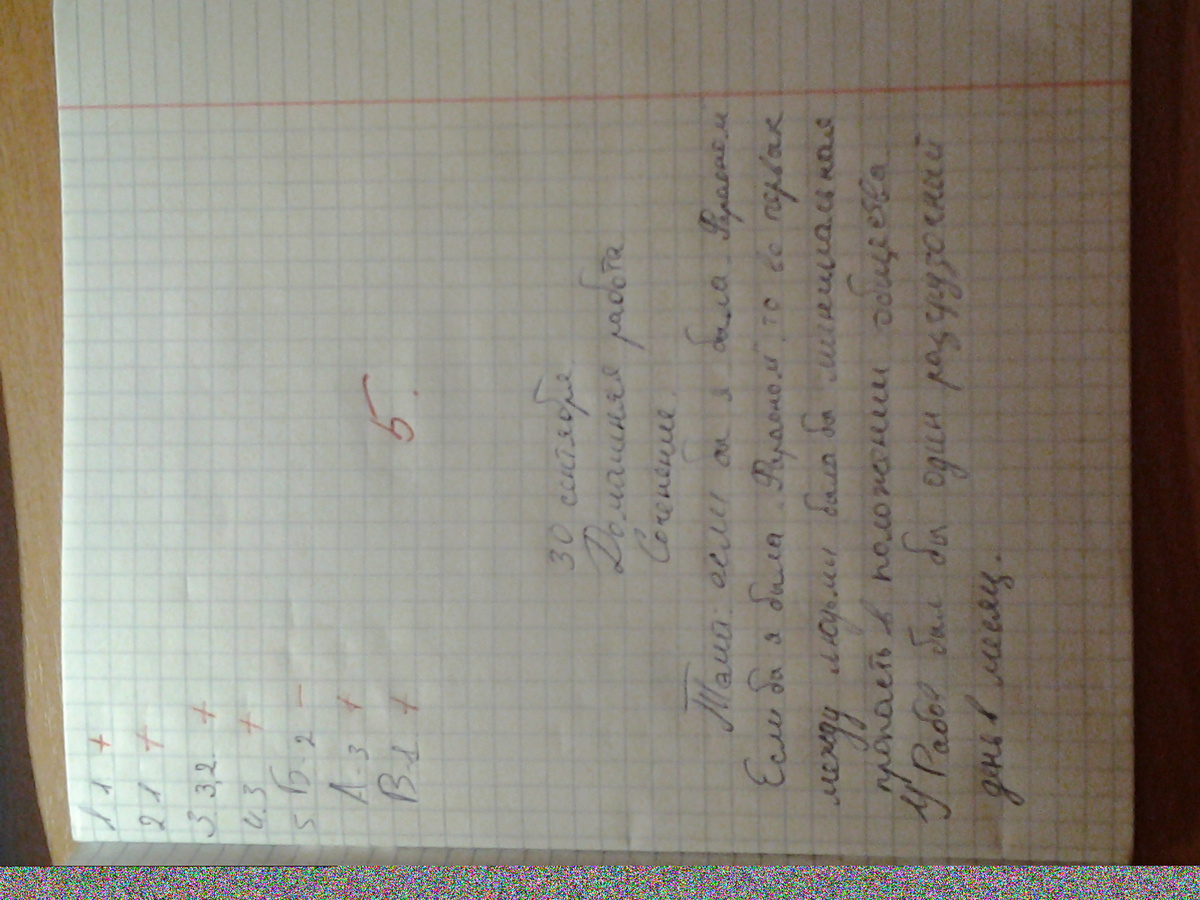 1. 1 +
2. 1 +
3. 3,2. +
4. 3 +
5 Б. 2 −
А. 3 +
В. 1 +
5.
30 сентября.
Домашняя работа
Соченение.
Тема: если бы я была Фараоном
Если бы я была Фараоном, то во первых
между людьми была бы минимальная
пропасть в положении общества
У Рабов был бы один разгрузочный
день в месяц.